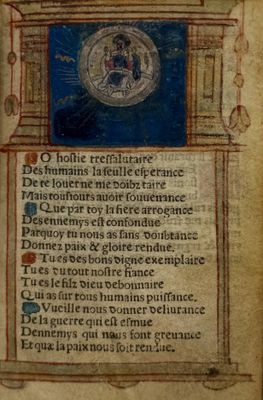 O hostie tressalutaire
Des humains la seulle esperance
De te louer ne me doibz taire
Mais tousiours auoir souuenance
Que par toy la fiere arrogance
Des ennemys est confondue
Parquoy tu nous as sans doubtance
Donnez paix & gloire rendue.
Tu es des bons digne exemplaire
Tu es du tout nostre fiance
Tu es le filz dieu debonnaire
Qui as sur tous humains puissance.
Vueille nous donner deliurance
De la guerre qui est esmue
Dennemys qui nous font greuance
Et que la paix nous soit rendue.